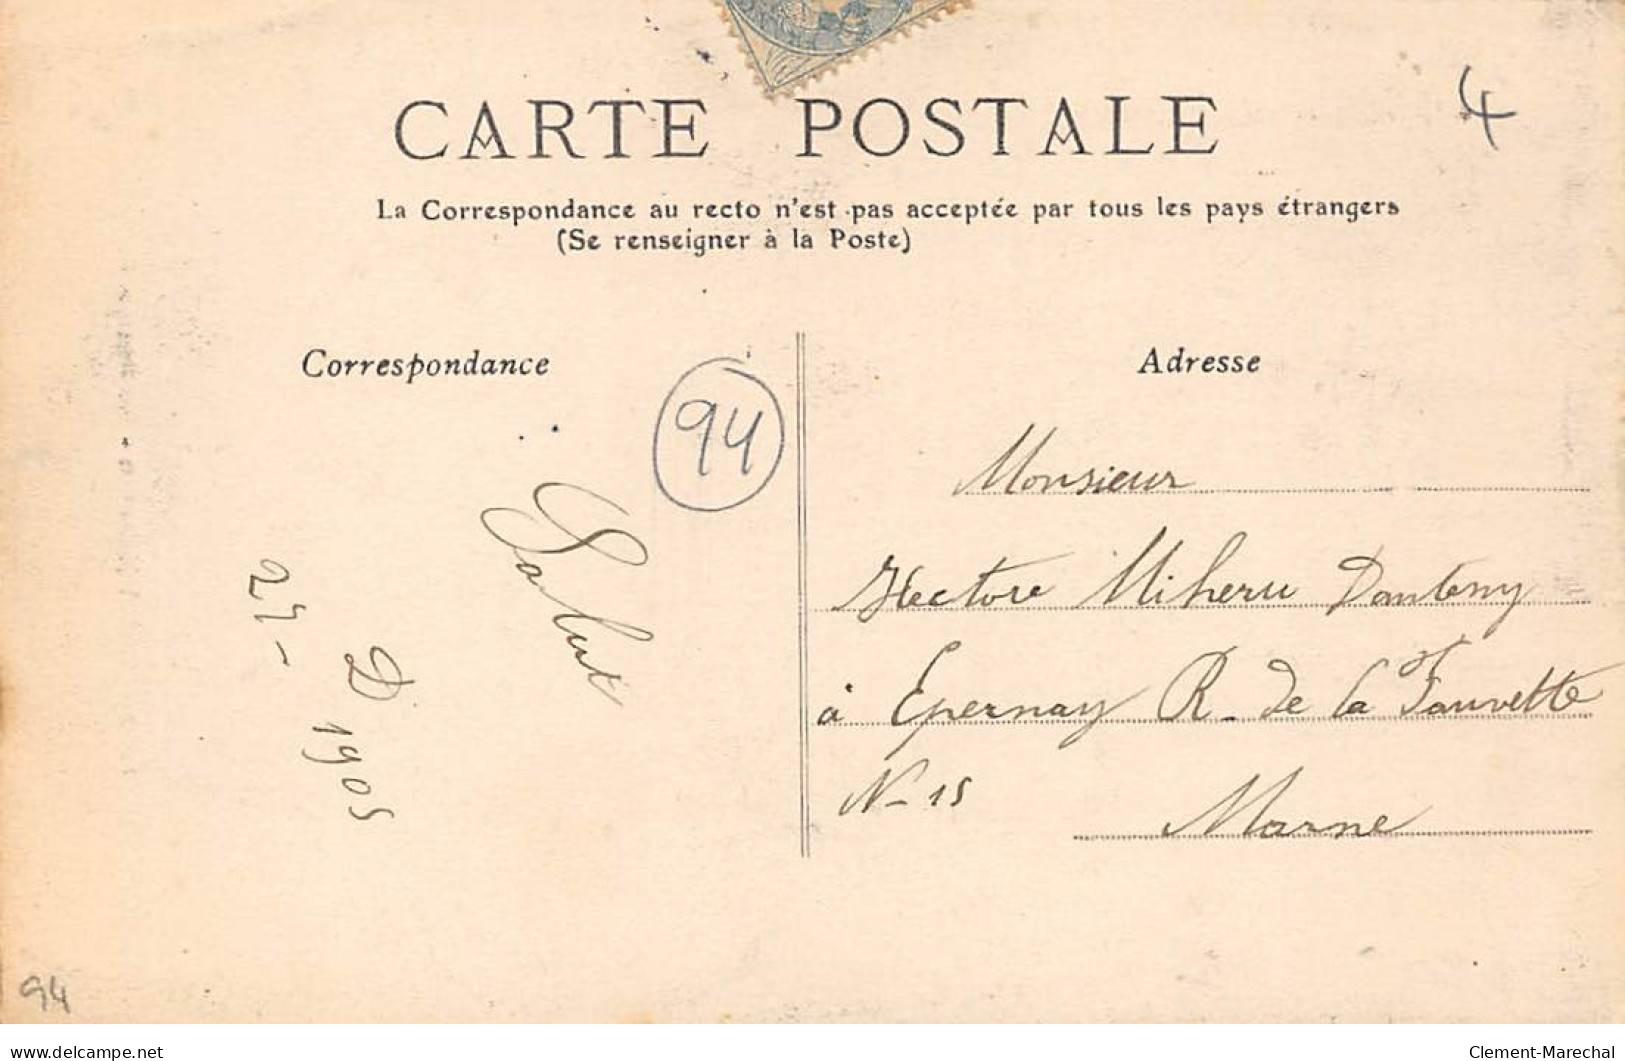 4
CARTE POSTALE
La Correspondance au recto n'est pas acceptée par tous les pays étrangers
(Se renseigner à la Poste)
Correspondance
Adresse
94
Salut
27 - D 1905
Monsieur
Hectore Miheru Dauteny
à Epernay R. de la Fauvette
N- 15
Marne
94
www.delcampe.net
Clement-Marechal